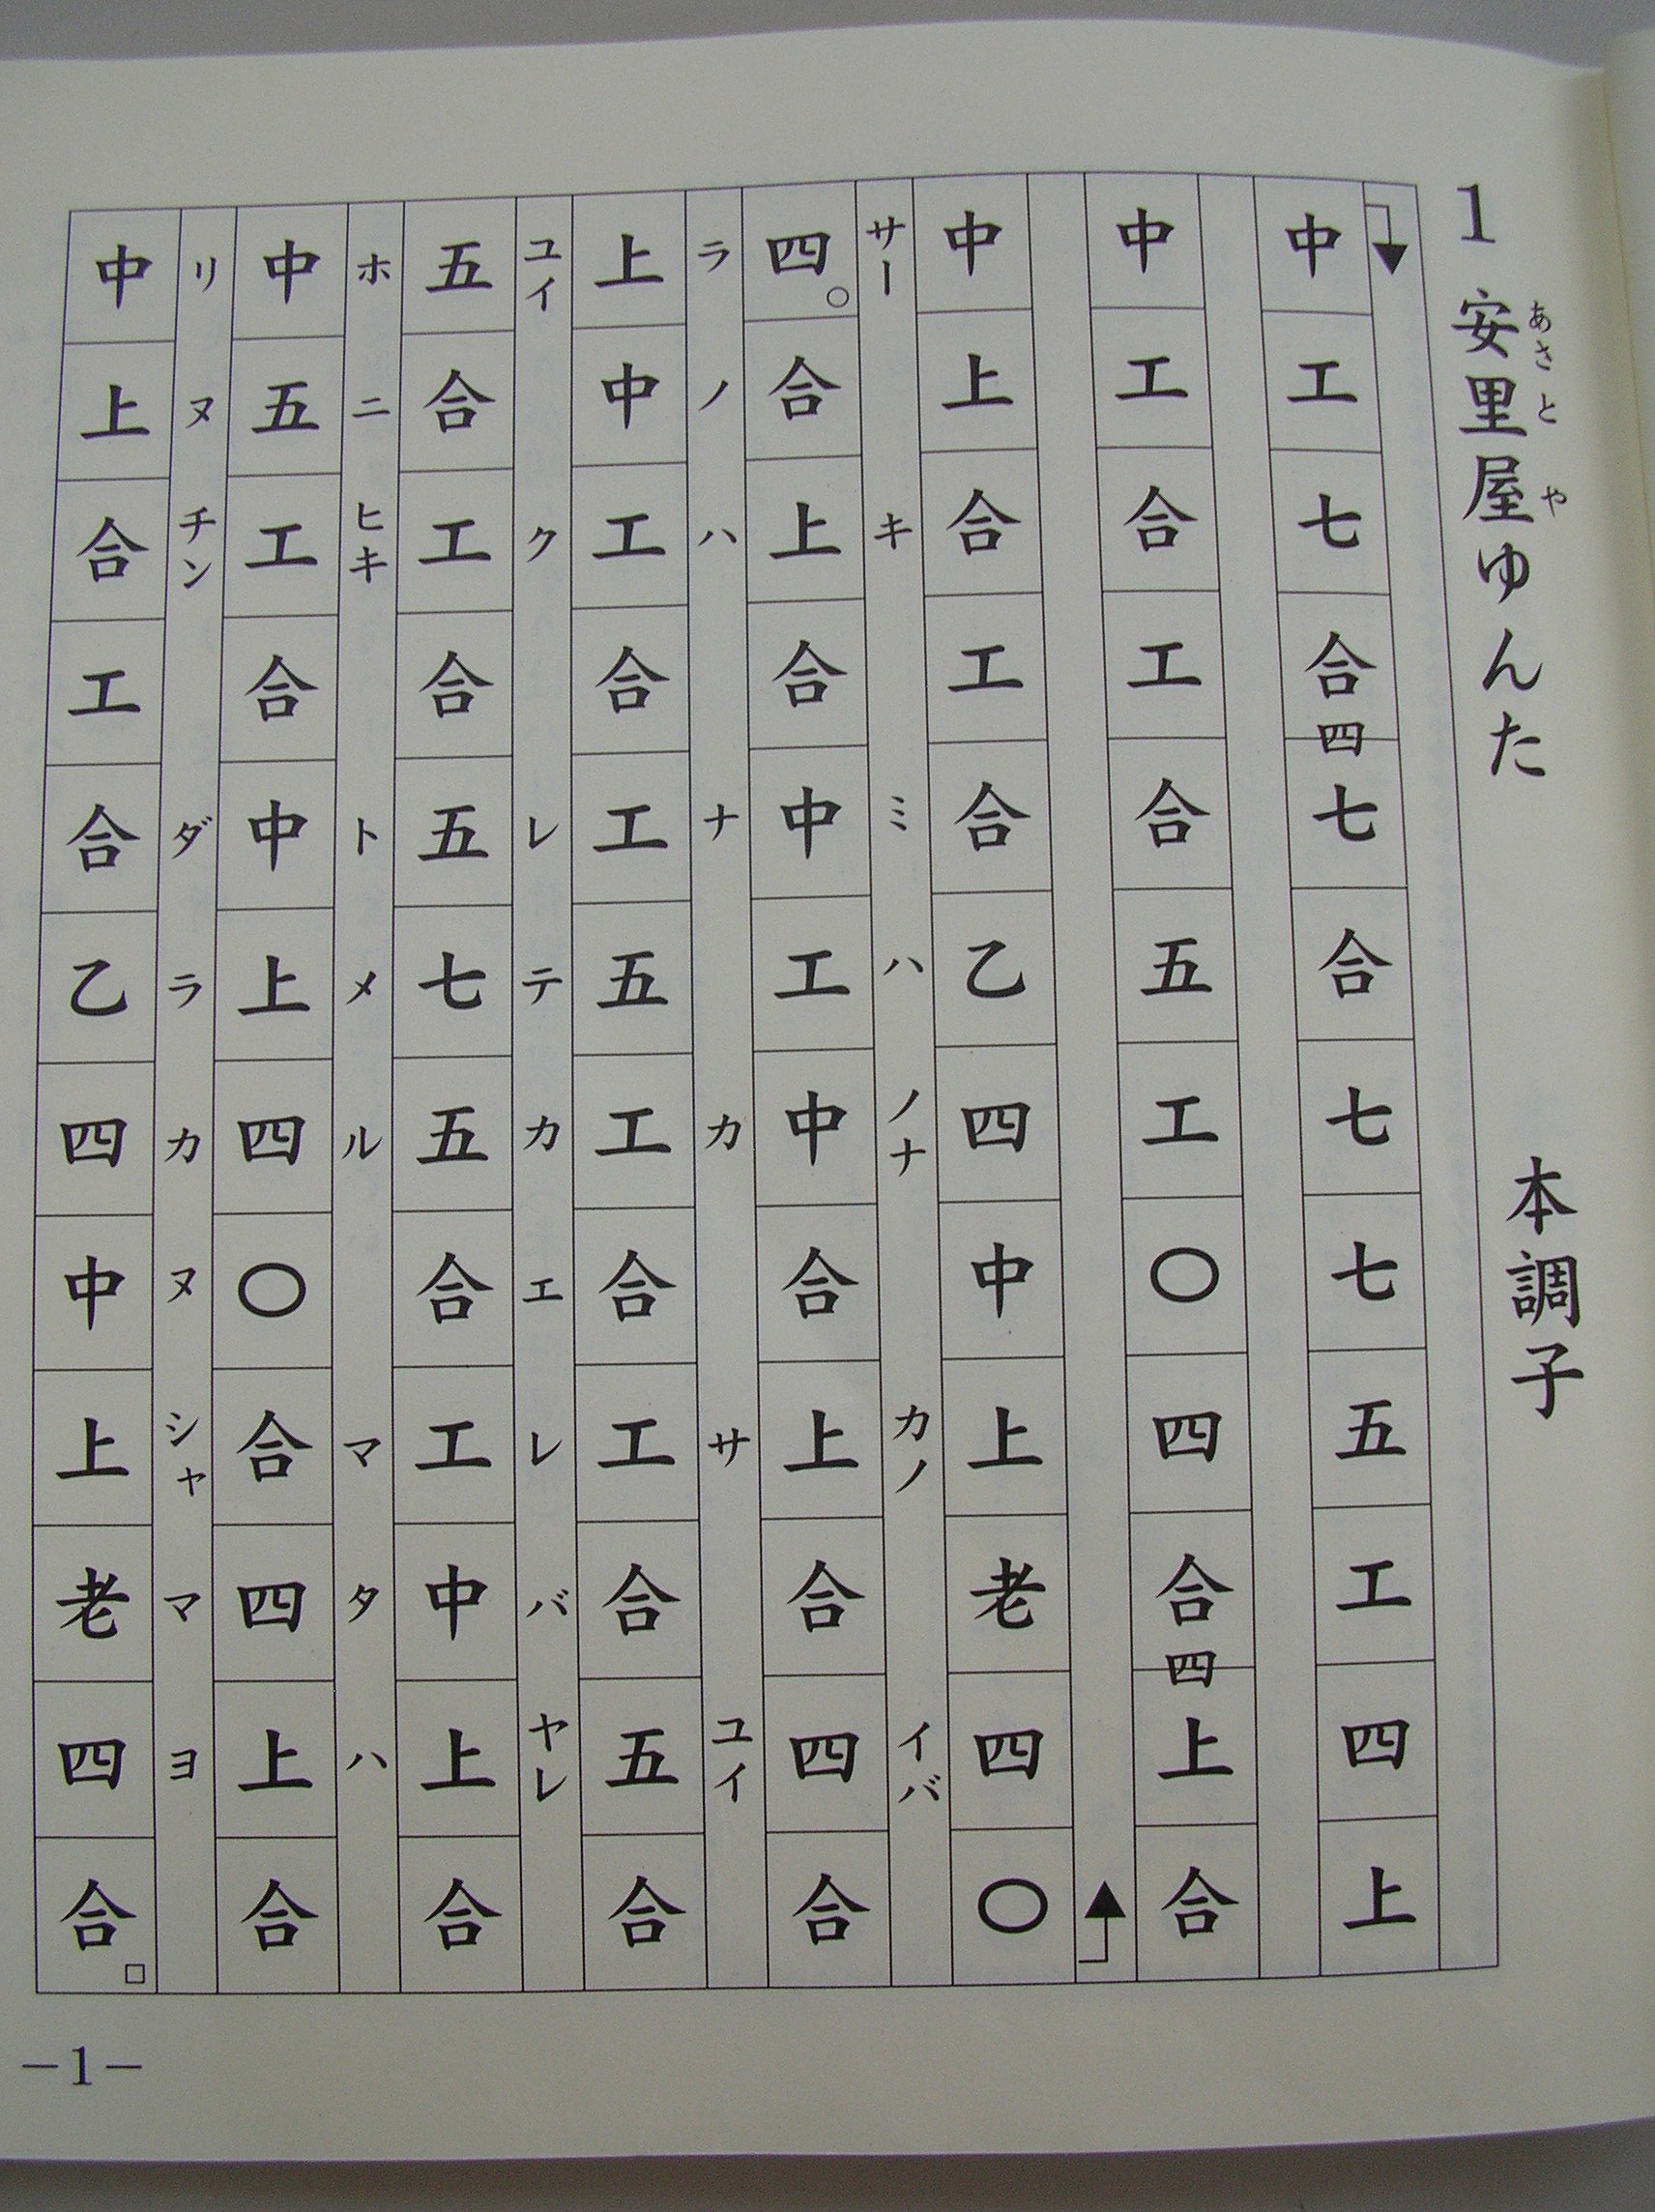 1 安里屋ゆんた 本調子
あさとや
中工七合四七合七七五工四上
中工合工合五工〇四合四上合
中上合工合乙四中上老四〇
サーキミハノナカノイバ
四。合上合中工中合上合四合
ラノハナカサユイ
上中工合工五工合工合五合
ユイクレテカエレバヤレ
五合工合五七五合工中上合
ホニヒキトメルマタハ
中五工合中上四〇合四上合
リヌチンダラカヌシャマヨ
中上合工合乙四中上老四合□
−1−